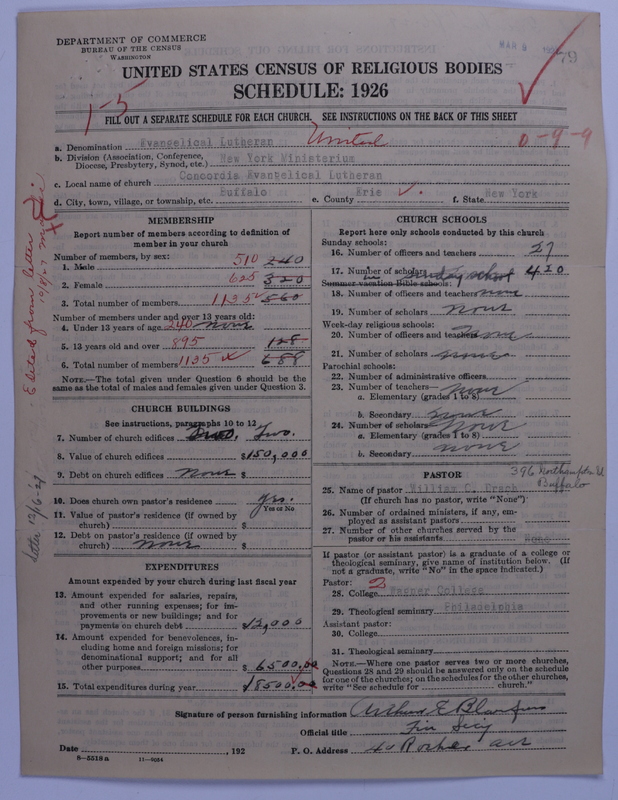 DEPARTMENT OF COMMERCE
BUREAU OF THE CENSUS
WASHINGTON
MAR 8
79
UNITED STATES CENSUS OF RELIGIOUS BODIES
SCHEDULE: 1926
1-5
FILL OUT A SEPARATE SCHEDULE FOR EACH CHURCH. SEE INSTRUCTIONS ON THE BACK OF THIS SHEET
a. Denomination Evangelical Lutheran United 0-9-9
b. Division (Association, Conference, Diocese, Presbytery, Synod, etc.) New York Ministerium
c. Local name of church Concordia Evangelical Lutheran
d. City, town, village, or township, etc. Buffalo e. County Erie f. State New York
MEMBERSHIP
Report number of members according to definition of
member in your church
Number of members, by sex:
1. Male 510 240
2. Female 625 320
3. Total number of members 1135 560
Number of members under and over 13 years old:
4. Under 13 years of age 240 None
5. 13 years old and over 895 128
6. Total number of members 1135 x 688
NOTE.—The total given under Question 6 should be the
same as the total of males and females given under Question 3.
CHURCH BUILDINGS
See instructions, paragraphs 10 to 12
7. Number of church edifices Two.
8. Value of church edifices $150,000
9. Debt on church edifices None $
10. Does church own pastor's residence Yes.
Yes or No
11. Value of pastor's residence (if owned by
church) $
12. Debt on pastor's residence (if owned by
church) None $
EXPENDITURES
Amount expended by your church during last fiscal year
13. Amount expended for salaries, repairs,
and other running expenses; for improvements
or new buildings; and for
payments on church debt $12,000
14. Amount expended for benevolences, including
home and foreign missions; for
denominational support; and for all
other purposes $6500.00
15. Total expenditures during year $18500.00
CHURCH SCHOOLS
Report here only schools conducted by this church
Sunday schools:
16. Number of officers and teachers 27
17. Number of scholars in Sunday school 420
Summer vacation Bible schools:
18. Number of officers and teachers none
19. Number of scholars None
Week-day religious schools:
20. Number of officers and teachers None
21. Number of scholars none
Parochial schools:
22. Number of administrative officers
23. Number of teachers—
a. Elementary (grades 1 to 8) None
b. Secondary none
24. Number of scholars—
a. Elementary (grades 1 to 8) None
b. Secondary none
PASTOR
396 Northampton St
Buffalo
25. Name of pastor William C. Drach
(If church has no pastor, write "None")
26. Number of ordained ministers, if any, employed
as assistant pastors
27. Number of other churches served by the
pastor or his assistants None
If pastor (or assistant pastor) is a graduate of a college or
theological seminary, give name of institution below. (If
not a graduate, write "No" in the space indicated.)
Pastor: 2
28. College Wagner College
29. Theological seminary Philadelphia
Assistant pastor:
30. College
31. Theological seminary
NOTE.—Where one pastor serves two or more churches,
Questions 28 and 29 should be answered only on the schedule
for one of the churches; on the schedules for the other churches,
write "See schedule for church."
Signature of person furnishing information Arthur E
Official title Fin Secy
Date , 192 P. O. Address 40 Rother ave
8—5518 a 11—9034
Edited from letter 10/8/27
letter 12/6-27